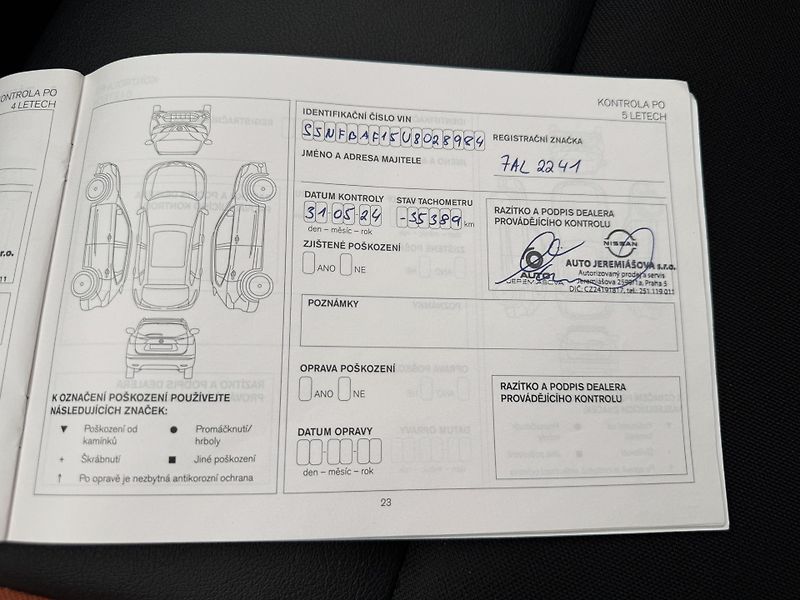 KONTROLA PO
4 LETECH
KONTROLA PO
5 LETECH
IDENTIFIKAČNÍ ČÍSLO VIN
SJNFBAF15U8028984
REGISTRAČNÍ ZNAČKA
7AL 2241
JMÉNO A ADRESA MAJITELE
DATUM KONTROLY
31-05-24
den – měsíc – rok
STAV TACHOMETRU
-35389 km
RAZÍTKO A PODPIS DEALERA
PROVÁDĚJÍCÍHO KONTROLU
NISSAN
AUTO JEREMIÁŠOVA s.r.o.
Autorizovaný prodej a servis
Jeremiášova 2599/1a, Praha 5
DIČ: CZ24191817, tel.: 251 119 011
AUTO
JEREMIÁŠOVA
ZJIŠTĚNÉ POŠKOZENÍ
ANO NE
POZNÁMKY
OPRAVA POŠKOZENÍ
ANO NE
RAZÍTKO A PODPIS DEALERA
PROVÁDĚJÍCÍHO KONTROLU
DATUM OPRAVY
den – měsíc – rok
K OZNAČENÍ POŠKOZENÍ POUŽÍVEJTE
NÁSLEDUJÍCÍCH ZNAČEK:
▼ Poškození od
kamínků
● Promáčknutí/
hrboly
+ Škrábnutí
■ Jiné poškození
↑ Po opravě je nezbytná antikorozní ochrana
23